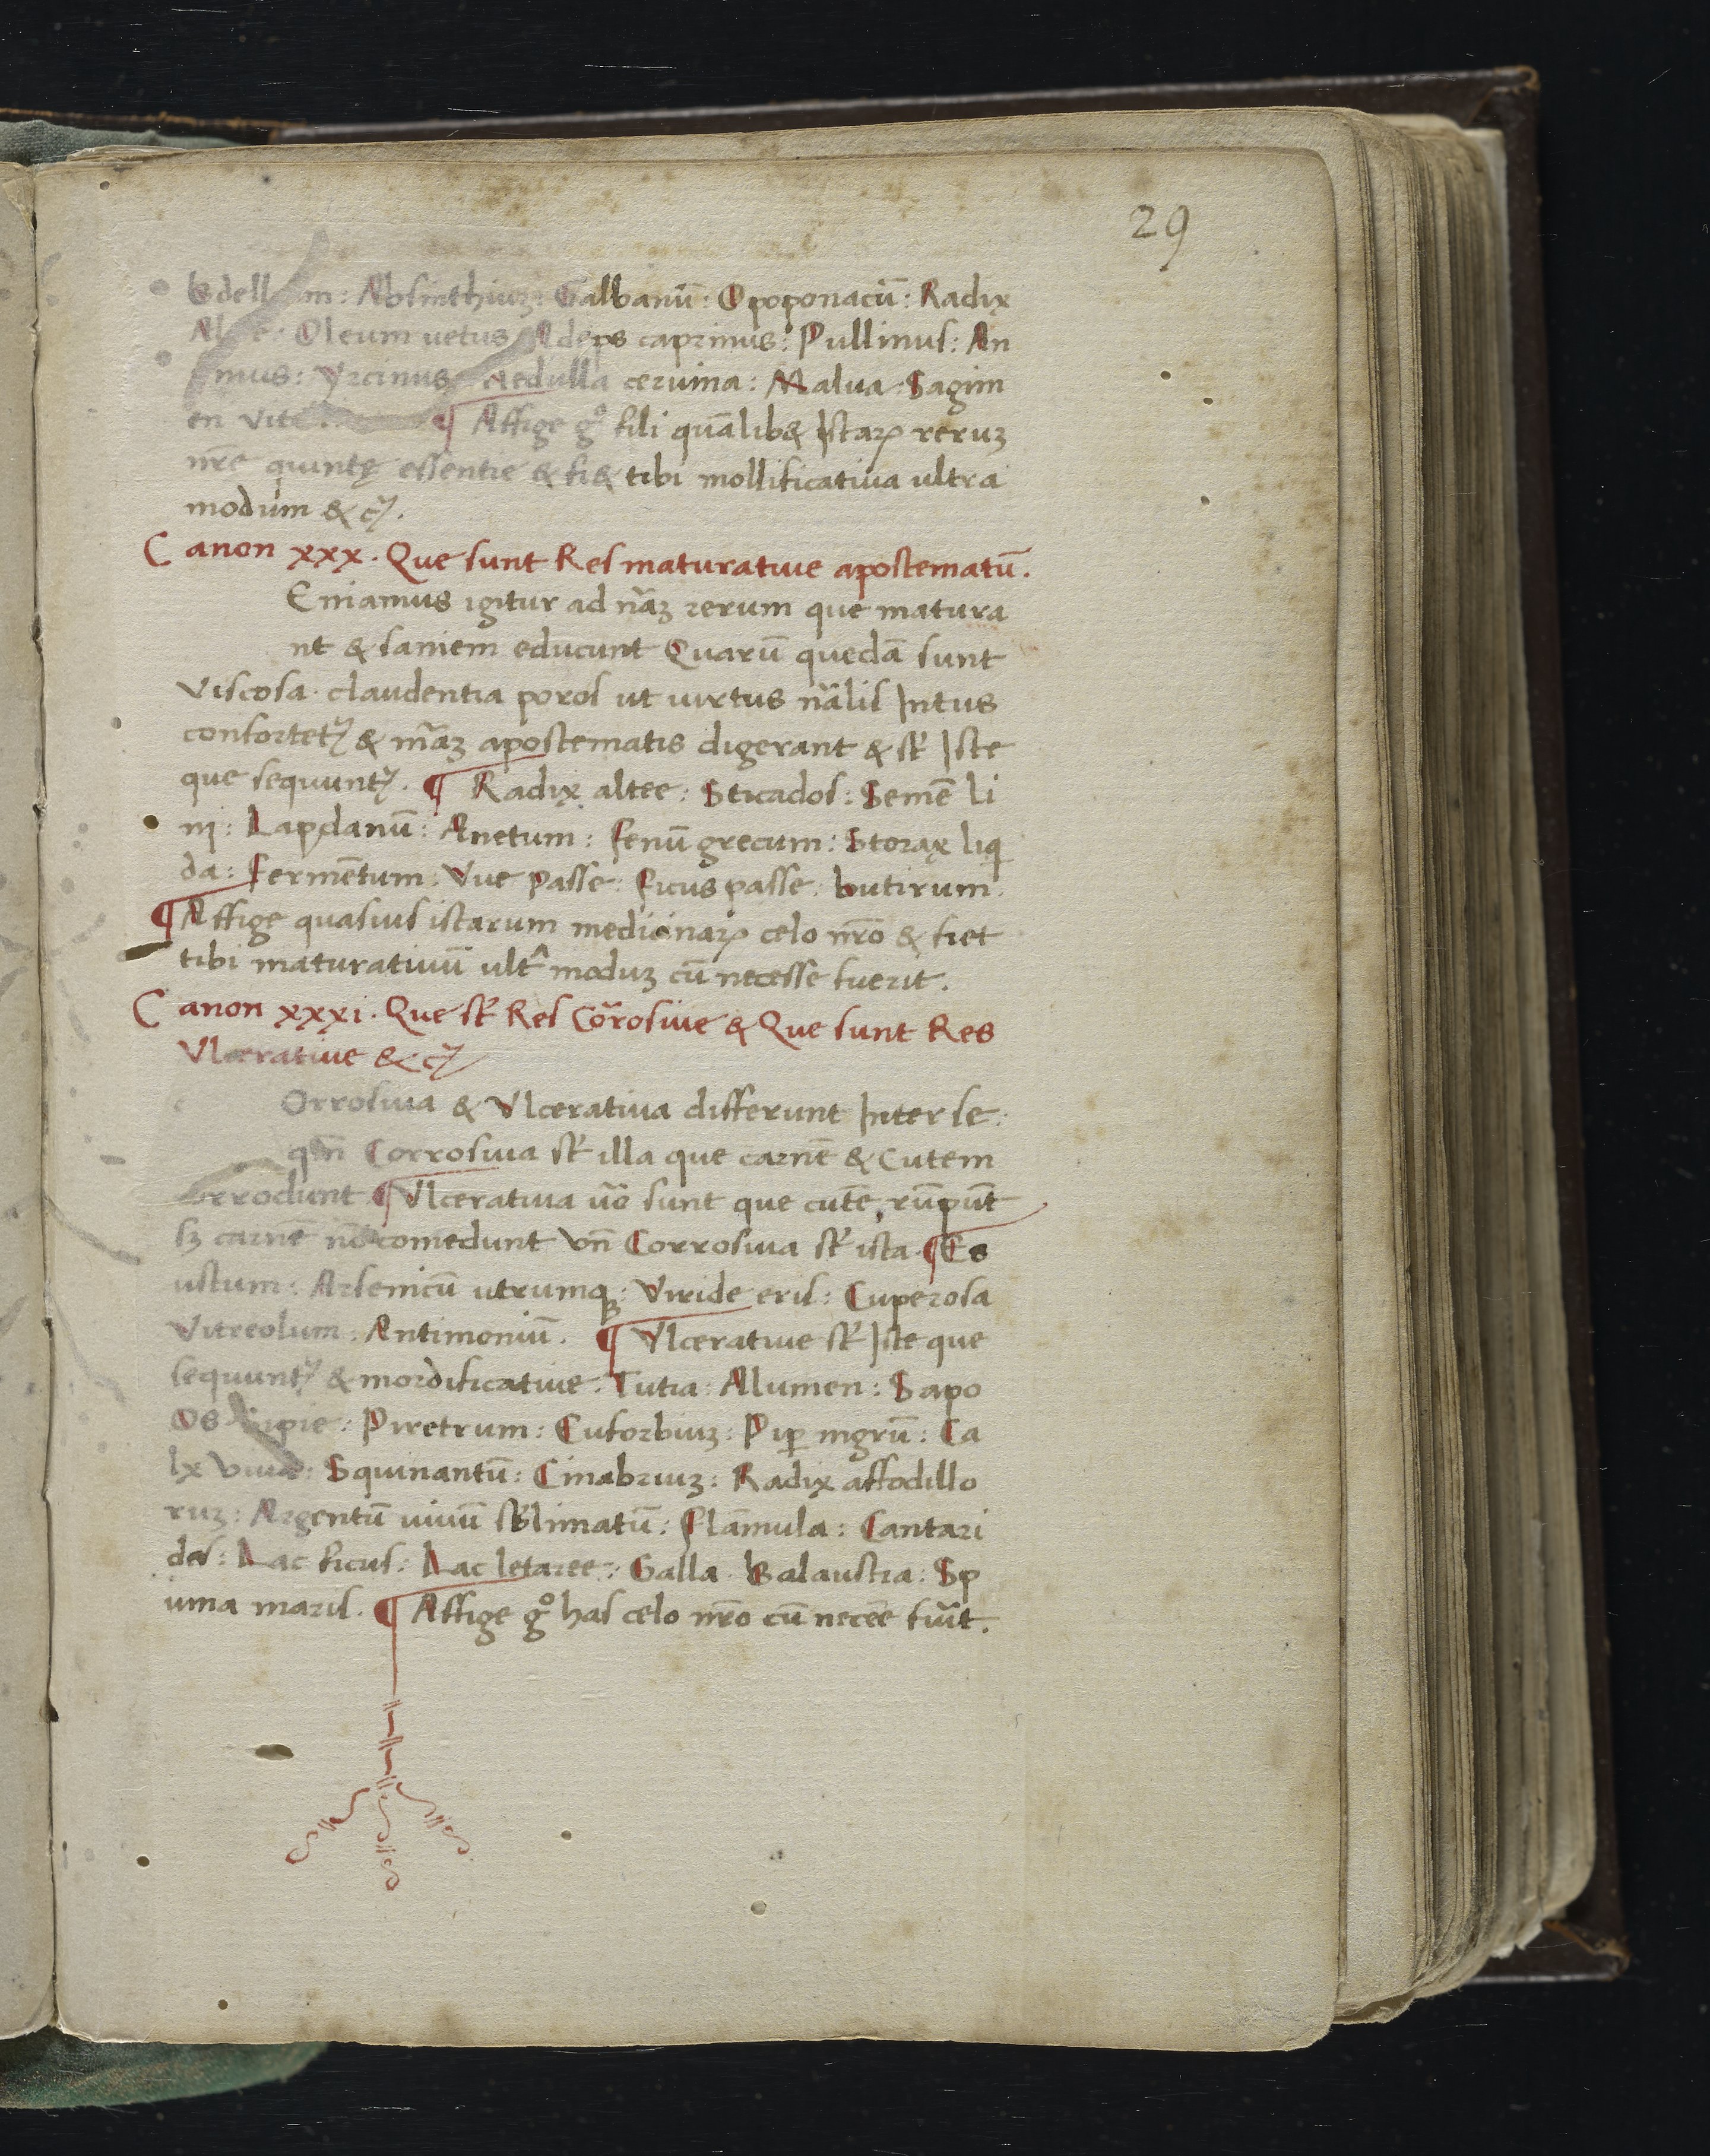 29
: Absinthiuʒ: Galbanū: Opoponacū: Radix
Oleum uetus: Adeps caprinus: Pullinus: An
Vrcinus: Medulla ceruina: Malua: Sagim
en ¶ Affige gͦ fili quālib& Istaꝝ reruʒ
nr̄e quintę essentie & fi& tibi mollificatiua ultra
modum & cꝫ.
Canon xxx. Que sunt Res maturatiue apostematū.
Eniamus igitur ad nāʒ rerum que matura
nt & saniem educunt Quarū quedā sunt
Viscosa. claudentia poros ut uirtus nālis Intus
confortetʳ & māʒ apostematis digerant & st̄ Iste
que sequuntʳ. ¶ Radix altee: Sticados: Semē li
ni: Lapdanū: Anetum: Fenū grecum: Storax liq
da: Fermētum: Vue passe: Ficus passe: butirum.
¶ Affige quasius istarum medicinaꝝ celo nr̄o & fiet
tibi maturatiuū ultᵃ moduʒ cū necesse fuerit.
Canon xxxi. Que st̄ Res Cōrosiue & Que sunt Res
Vlceratiue & cꝫ
Orrosiua & Vlceratiua differunt Inter se:
qm̄ Corrosiua st̄ illa que carnē & Cutem
rrodunt ¶ Vlceratiua ūo sunt que cutē rūpūt
sʒ carnē nō comedunt Vn̄ Corrosiua st̄ ista. ¶ Es
ustum: Arsenicū utrumqꝫ: Viride eris: Cuperosa
Vitreolum: Antimoniū. ¶ Vlceratiue st̄ Iste que
sequuntʳ & mordificatiue. Tutia: Alumen: Sapo
Os : Piretrum: Euforbiuʒ: Pip̄ nigrū: Ca
lx viua: Squinantū: Cinabriuʒ: Radix affodillo
ruʒ: Argentū uiuū sb̄limatū: Flāmula: Cantari
des: Lac ficus: Lac letaree: Galla. Balaustia: Sp
uma maris. ¶ Affige gͦ has celo nr̄o cū necēe fuīt.